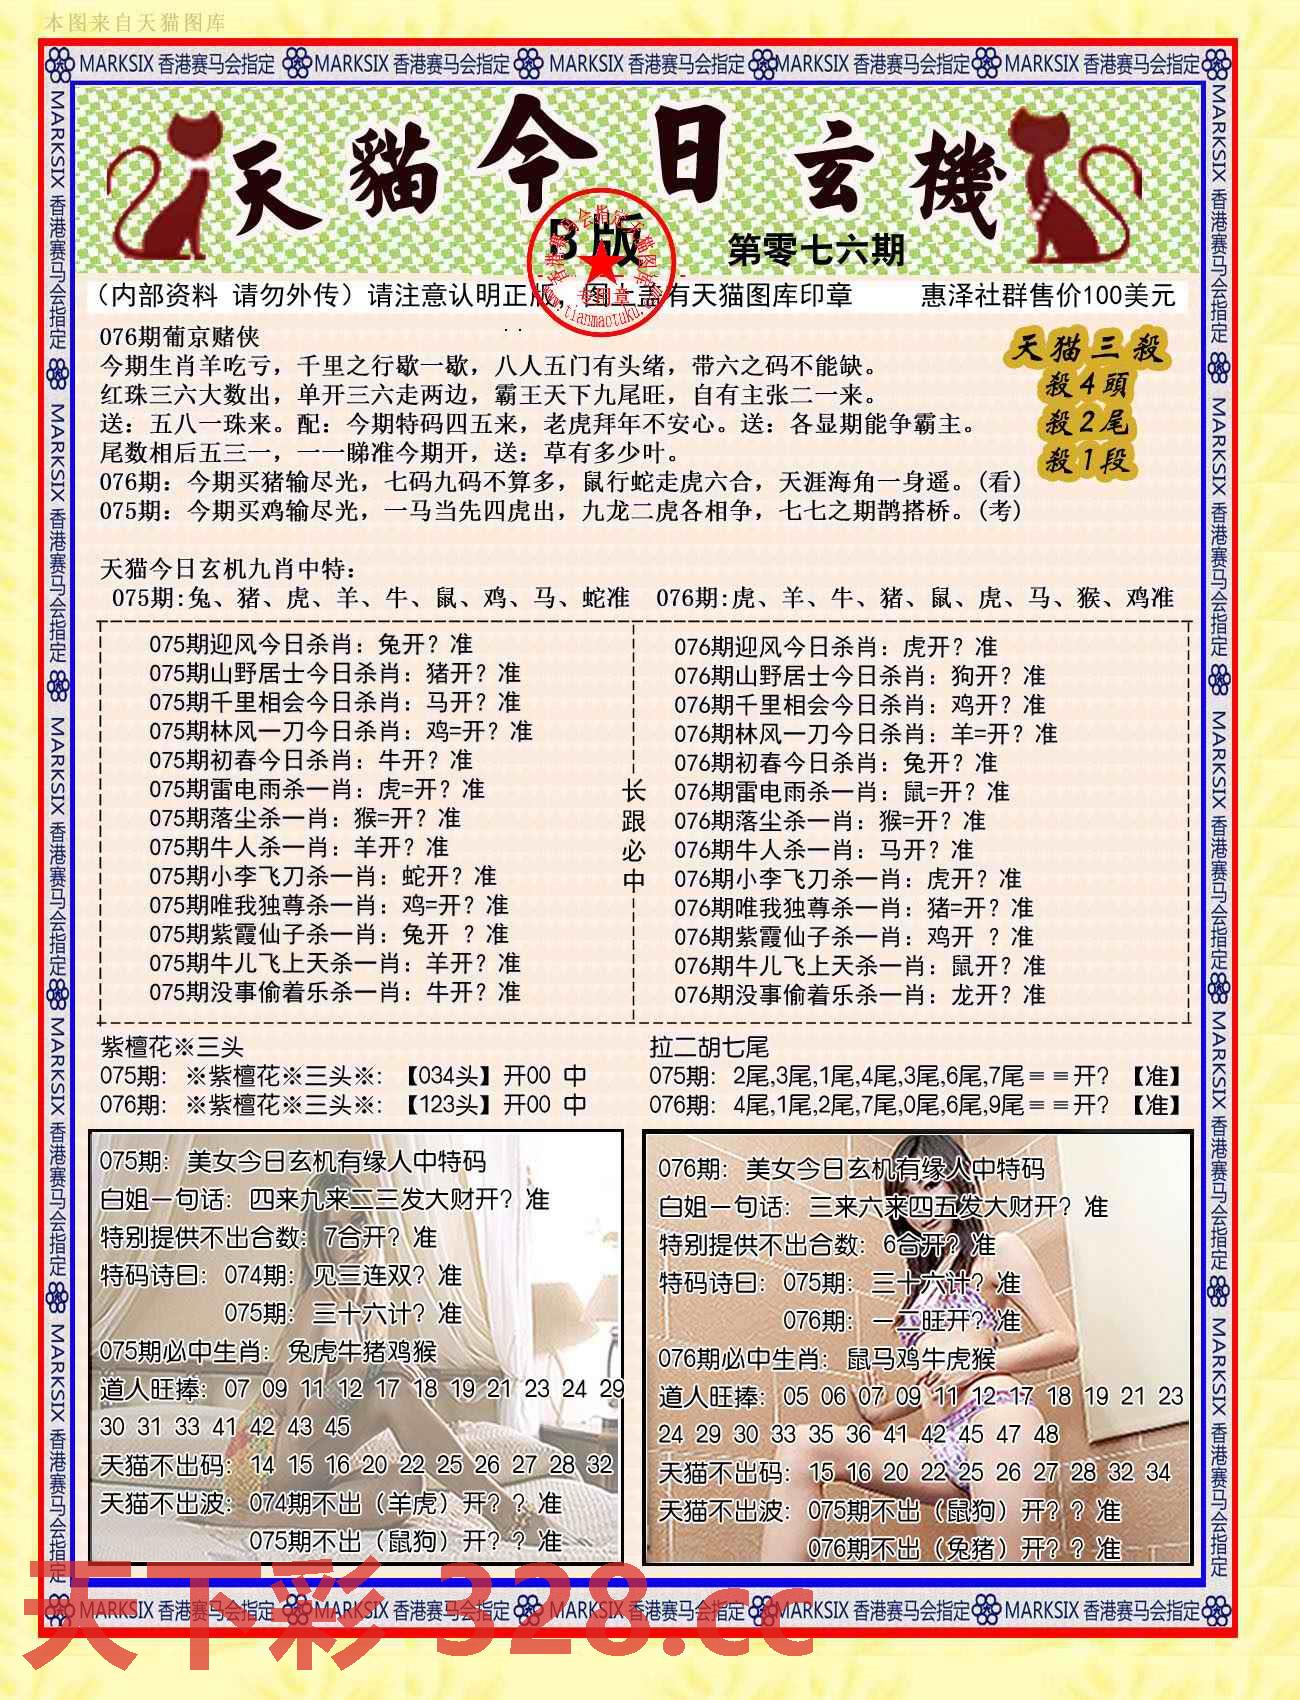 本图来自天猫图库
MARKSIX 香港赛马会指定 MARKSIX 香港赛马会指定 MARKSIX 香港赛马会指定 MARKSIX 香港赛马会指定 MARKSIX 香港赛马会指定
天貓今日玄機
B版
第零七六期
（内部资料 请勿外传）请注意认明正版，图上盖有天猫图库印章 惠泽社群售价100美元
专用章
www.tianmaotuku.com
076期葡京赌侠
今期生肖羊吃亏，千里之行歇一歇，八人五门有头绪，带六之码不能缺。
红珠三六大数出，单开三六走两边，霸王天下九尾旺，自有主张二一来。
送：五八一珠来。配：今期特码四五来，老虎拜年不安心。送：各显期能争霸主。
尾数相后五三一，一一睇准今期开，送：草有多少叶。
076期：今期买猪输尽光，七码九码不算多，鼠行蛇走虎六合，天涯海角一身遥。(看)
075期：今期买鸡输尽光，一马当先四虎出，九龙二虎各相争，七七之期鹊搭桥。(考)
天猫三殺
殺4頭
殺2尾
殺1段
天猫今日玄机九肖中特：
075期:兔、猪、虎、羊、牛、鼠、鸡、马、蛇准 076期:虎、羊、牛、猪、鼠、虎、马、猴、鸡准
075期迎风今日杀肖：兔开？准
075期山野居士今日杀肖：猪开？准
075期千里相会今日杀肖：马开？准
075期林风一刀今日杀肖：鸡=开？准
075期初春今日杀肖：牛开？准
075期雷电雨杀一肖：虎=开？准
075期落尘杀一肖：猴=开？准
075期牛人杀一肖：羊开？准
075期小李飞刀杀一肖：蛇开？准
075期唯我独尊杀一肖：鸡=开？准
075期紫霞仙子杀一肖：兔开 ？准
075期牛儿飞上天杀一肖：羊开？准
075期没事偷着乐杀一肖：牛开？准
长跟必中
076期迎风今日杀肖：虎开？准
076期山野居士今日杀肖：狗开？准
076期千里相会今日杀肖：鸡开？准
076期林风一刀今日杀肖：羊=开？准
076期初春今日杀肖：兔开？准
076期雷电雨杀一肖：鼠=开？准
076期落尘杀一肖：猴=开？准
076期牛人杀一肖：马开？准
076期小李飞刀杀一肖：虎开？准
076期唯我独尊杀一肖：猪=开？准
076期紫霞仙子杀一肖：鸡开 ？准
076期牛儿飞上天杀一肖：鼠开？准
076期没事偷着乐杀一肖：龙开？准
紫檀花※三头
075期: ※紫檀花※三头※: 【034头】开00 中
076期: ※紫檀花※三头※: 【123头】开00 中
拉二胡七尾
075期: 2尾,3尾,1尾,4尾,3尾,6尾,7尾＝＝开? 【准】
076期: 4尾,1尾,2尾,7尾,0尾,6尾,9尾＝＝开? 【准】
075期：美女今日玄机有缘人中特码
白姐一句话：四来九来二三发大财开？准
特别提供不出合数：7合开？准
特码诗曰：074期：见三连双？准
075期：三十六计？准
075期必中生肖：兔虎牛猪鸡猴
道人旺捧：07 09 11 12 17 18 19 21 23 24 29
30 31 33 41 42 43 45
天猫不出码：14 15 16 20 22 25 26 27 28 32
天猫不出波：074期不出（羊虎）开？？准
075期不出（鼠狗）开？？准
076期：美女今日玄机有缘人中特码
白姐一句话：三来六来四五发大财开？准
特别提供不出合数：6合开？准
特码诗曰：075期：三十六计？准
076期：一二旺开？准
076期必中生肖：鼠马鸡牛虎猴
道人旺捧：05 06 07 09 11 12 17 18 19 21 23
24 29 30 33 35 36 41 42 45 47 48
天猫不出码：15 16 20 22 25 26 27 28 32 34
天猫不出波：075期不出（鼠狗）开？？准
076期不出（兔猪）开？？准
MARKSIX 香港赛马会指定 MARKSIX 香港赛马会指定 MARKSIX 香港赛马会指定 MARKSIX 香港赛马会指定
MARKSIX 香港赛马会指定 MARKSIX 香港赛马会指定 MARKSIX 香港赛马会指定 MARKSIX 香港赛马会指定 MARKSIX 香港赛马会指定
MARKSIX 香港赛马会指定 MARKSIX 香港赛马会指定 MARKSIX 香港赛马会指定 MARKSIX 香港赛马会指定 MARKSIX 香港赛马会指定
MARKSIX 香港赛马会指定
天下彩 328.cc